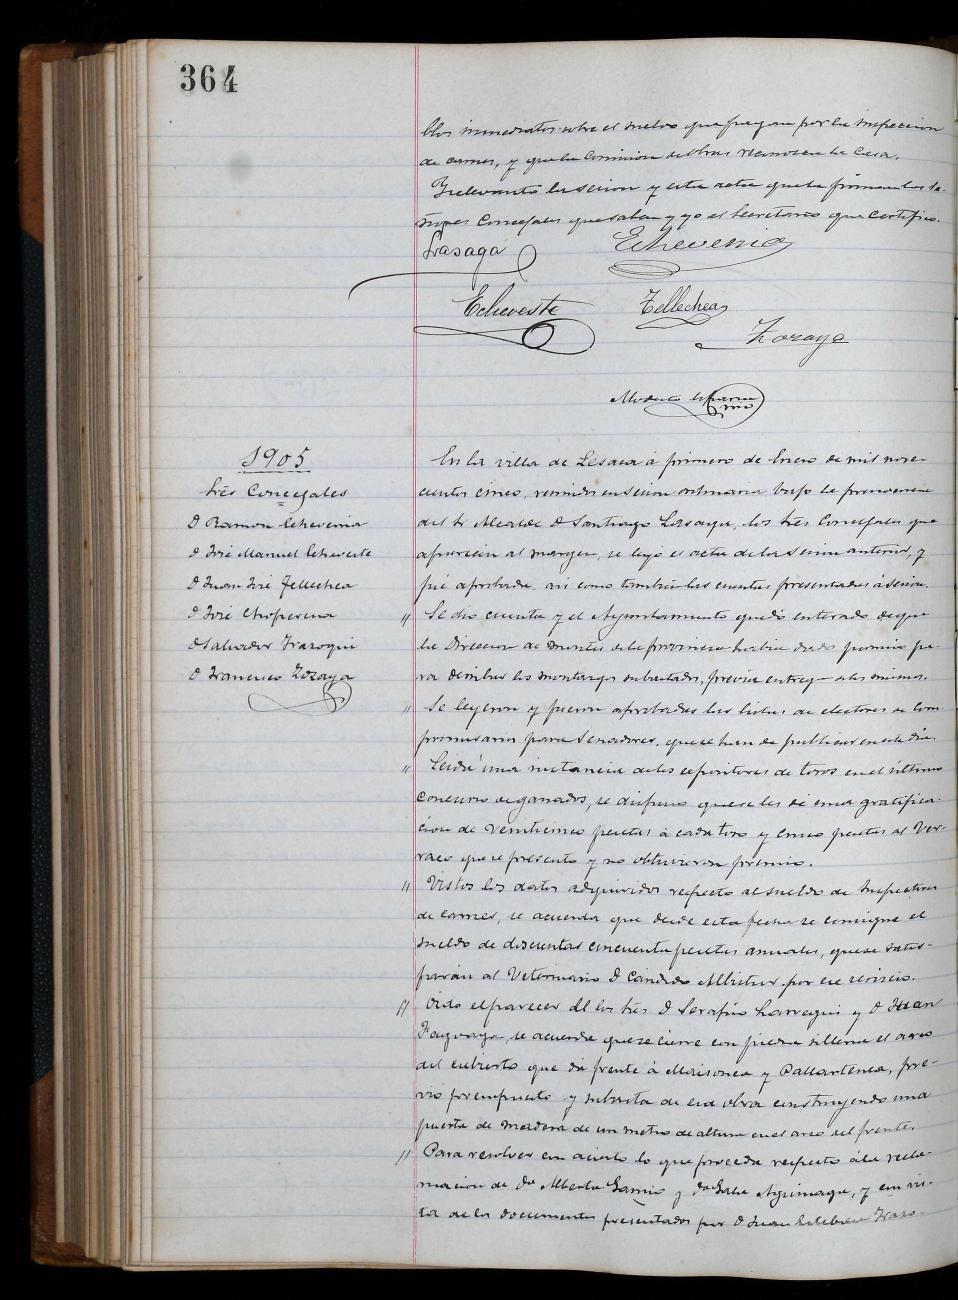 364
blos inmediatos sobre el sueldo que pagan por la inspeccion
de carnes, y que la Comision de obras reconozca la casa.
Y se levantó la sesion y esta acta que la firman los se-
ñores Concejales que saben y yo el Secretario que certifico.
Lasaga Echeverria
Echeveste Tellechea
Zozaya
Modesto
1905
Sres Concejales
D Ramon Echeverria
D José Manuel Echeveste
D Juan José Tellechea
D José
D Salvador Irazoqui
D Francisco Zozaya
En la villa de Lesaca á primero de Enero de mil nove-
cientos cinco, reunidos en sesion ordinaria bajo la presidencia
del Sr Alcalde D Santiago Lasaga, los Sres Concejales que
aparecen al margen, se leyó el acta de la sesion anterior, y
fué aprobada, asi como tambien las cuentas presentadas á sesion.
" Se dio cuenta y el Ayuntamiento quedó enterado de que
la Direccion de montes de la provincia habia dado permiso pa-
ra derribar los montazgos subastados, previa entrega de los mismos.
" Se leyeron y fueron aprobadas las listas de electores de Com-
promisarios para Senadores, que se han de publicar en este dia.
" Leida una instancia de los expositores de toros en el último
concurso de ganados, se dispuso que se les dé una gratifica-
cion de veinticinco pesetas á cada toro y cinco pesetas al ver-
raco que se presentó y no obtuvieron premio.
" Vistos los datos adquiridos respecto al sueldo de Inspectores
de carnes, se acuerda que desde esta fecha se consigne el
sueldo de doscientas cincuenta pesetas anuales, que se satis-
farán al Veterinario D Cándido Albistur por ese servicio.
" Oido el parecer del los Sres D Serafin Larregui y D Juan
Fagoaga, se acuerda que se cierre con piedra silleria el arco
del cubierto que dá frente á Maisonea y Pallartenea, pre-
vio presupuesto y subasta de esa obra construyendo una
puerta de madera de un metro de altura en el arco del frente.
" Para resolver con acierto lo que proceda respecto á la recla-
macion de Da Alberta Garmio y Da Gaba Agirinaga, y con vis-
ta de los documentos presentados por D Juan Esteban Irazo-